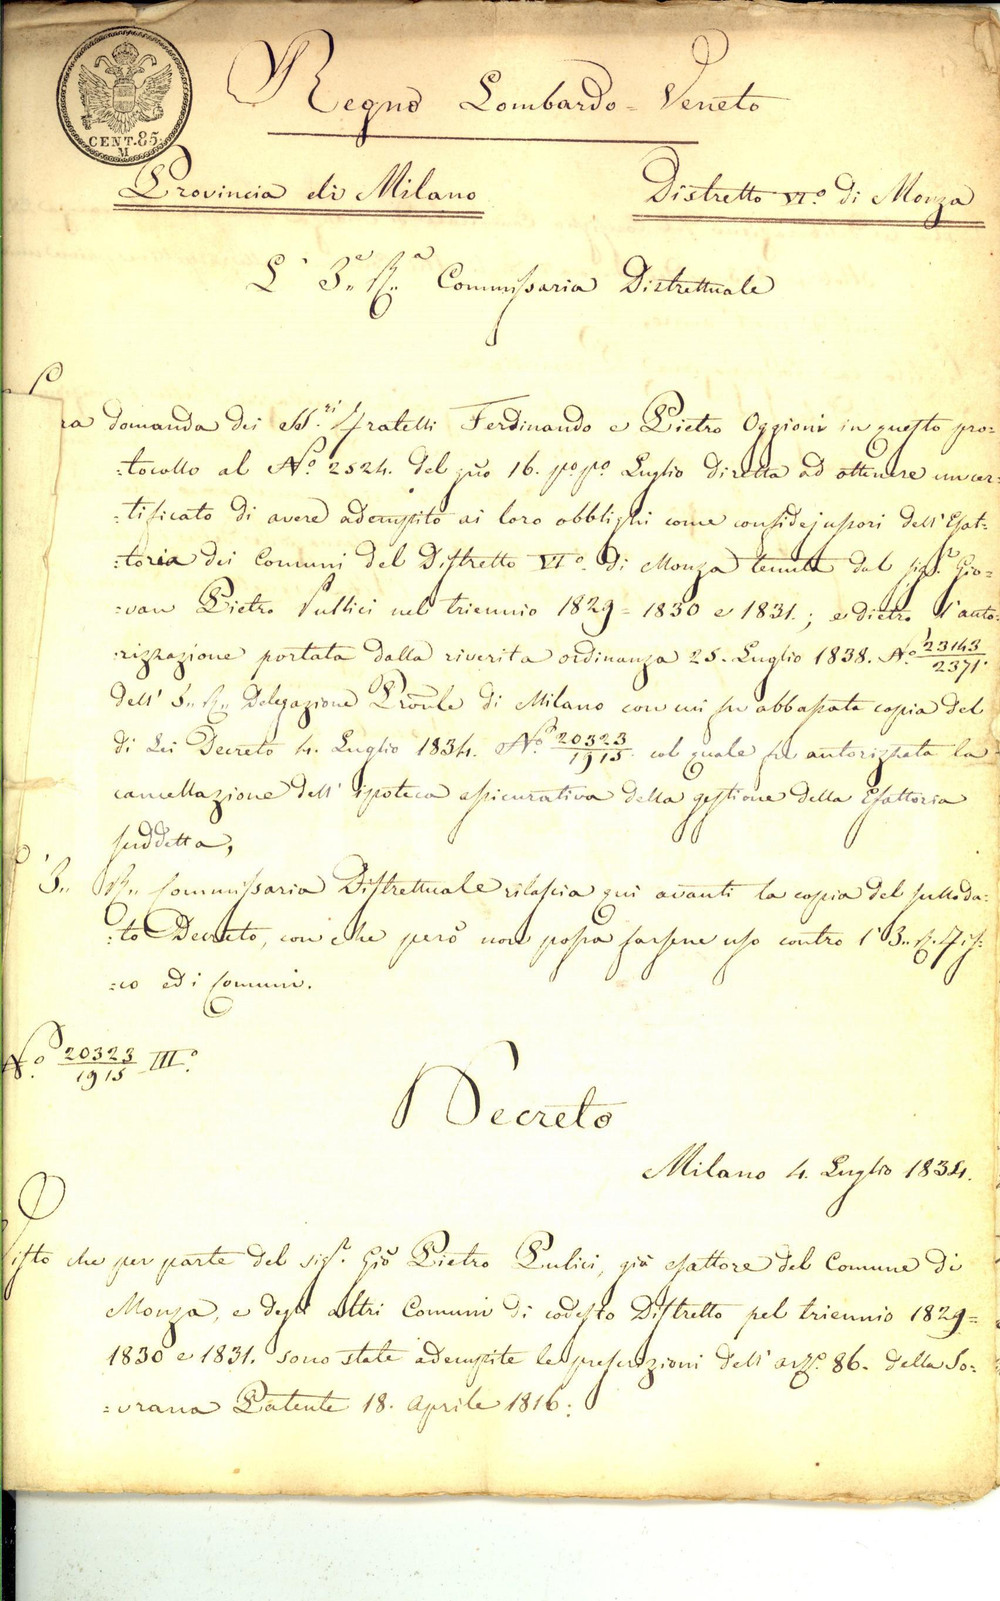 CENT. 85.
M
Regno Lombardo=Veneto
Provincia di Milano
Distretto VI.o di Monza
L' I.a R.a Commissaria Distrettuale
ra domanda dei SS.ri Fratelli Ferdinando e Pietro Oggioni in questo pro=
=tocollo al N.o 2524. del 16. p.o p.o Luglio diretta ad ottenere un cer=
=tificato di avere adempito ai loro obblighi come confidejussori dell' Esat=
=toria dei Comuni del Distretto VI.o di Monza tenuta dal sig.r Gio=
=van Pietro Pullici nel triennio 1829=1830 e 1831.; e dietro l'auto=
=rizzazione portata dalla riverita ordinanza 25. Luglio 1838. N.o 23143/2371.
dell' I. R. Delegazione Prov.le di Milano con cui fu abbassata copia del
di Lei Decreto 4. Luglio 1834. N.o 20323/1915 col quale fu autorizzata la
cancellazione dell' ipoteca assicurativa della gestione della Esattoria
suddetta,
I. R. Commissaria Distrettuale rilascia qui avanti la copia del sulloda=
=to Decreto, con che però non possa farsene uso contro l' I. R. Fis=
=co ed i Comuni.
N.o 20323/1915 III.o
Decreto
Milano 4. Luglio 1834.
Visto che per parte del sig.r Gio Pietro Pulici, già esattore del Comune di
Monza, e degli altri Comuni di codesto Distretto pel triennio 1829=
1830 e 1831. sono state adempite le prescrizioni dell' art.o 86. della So=
=vrana Patente 18. Aprile 1816: